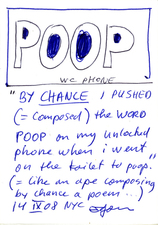 POOP
WC PHONE
"BY CHANCE I PUSHED
(= composed) the WORD
POOP on my unlocked
phone when i went
on the toilet to poop."
(= like an ape composing
by chance a poem...)
14 IX 08 NYC